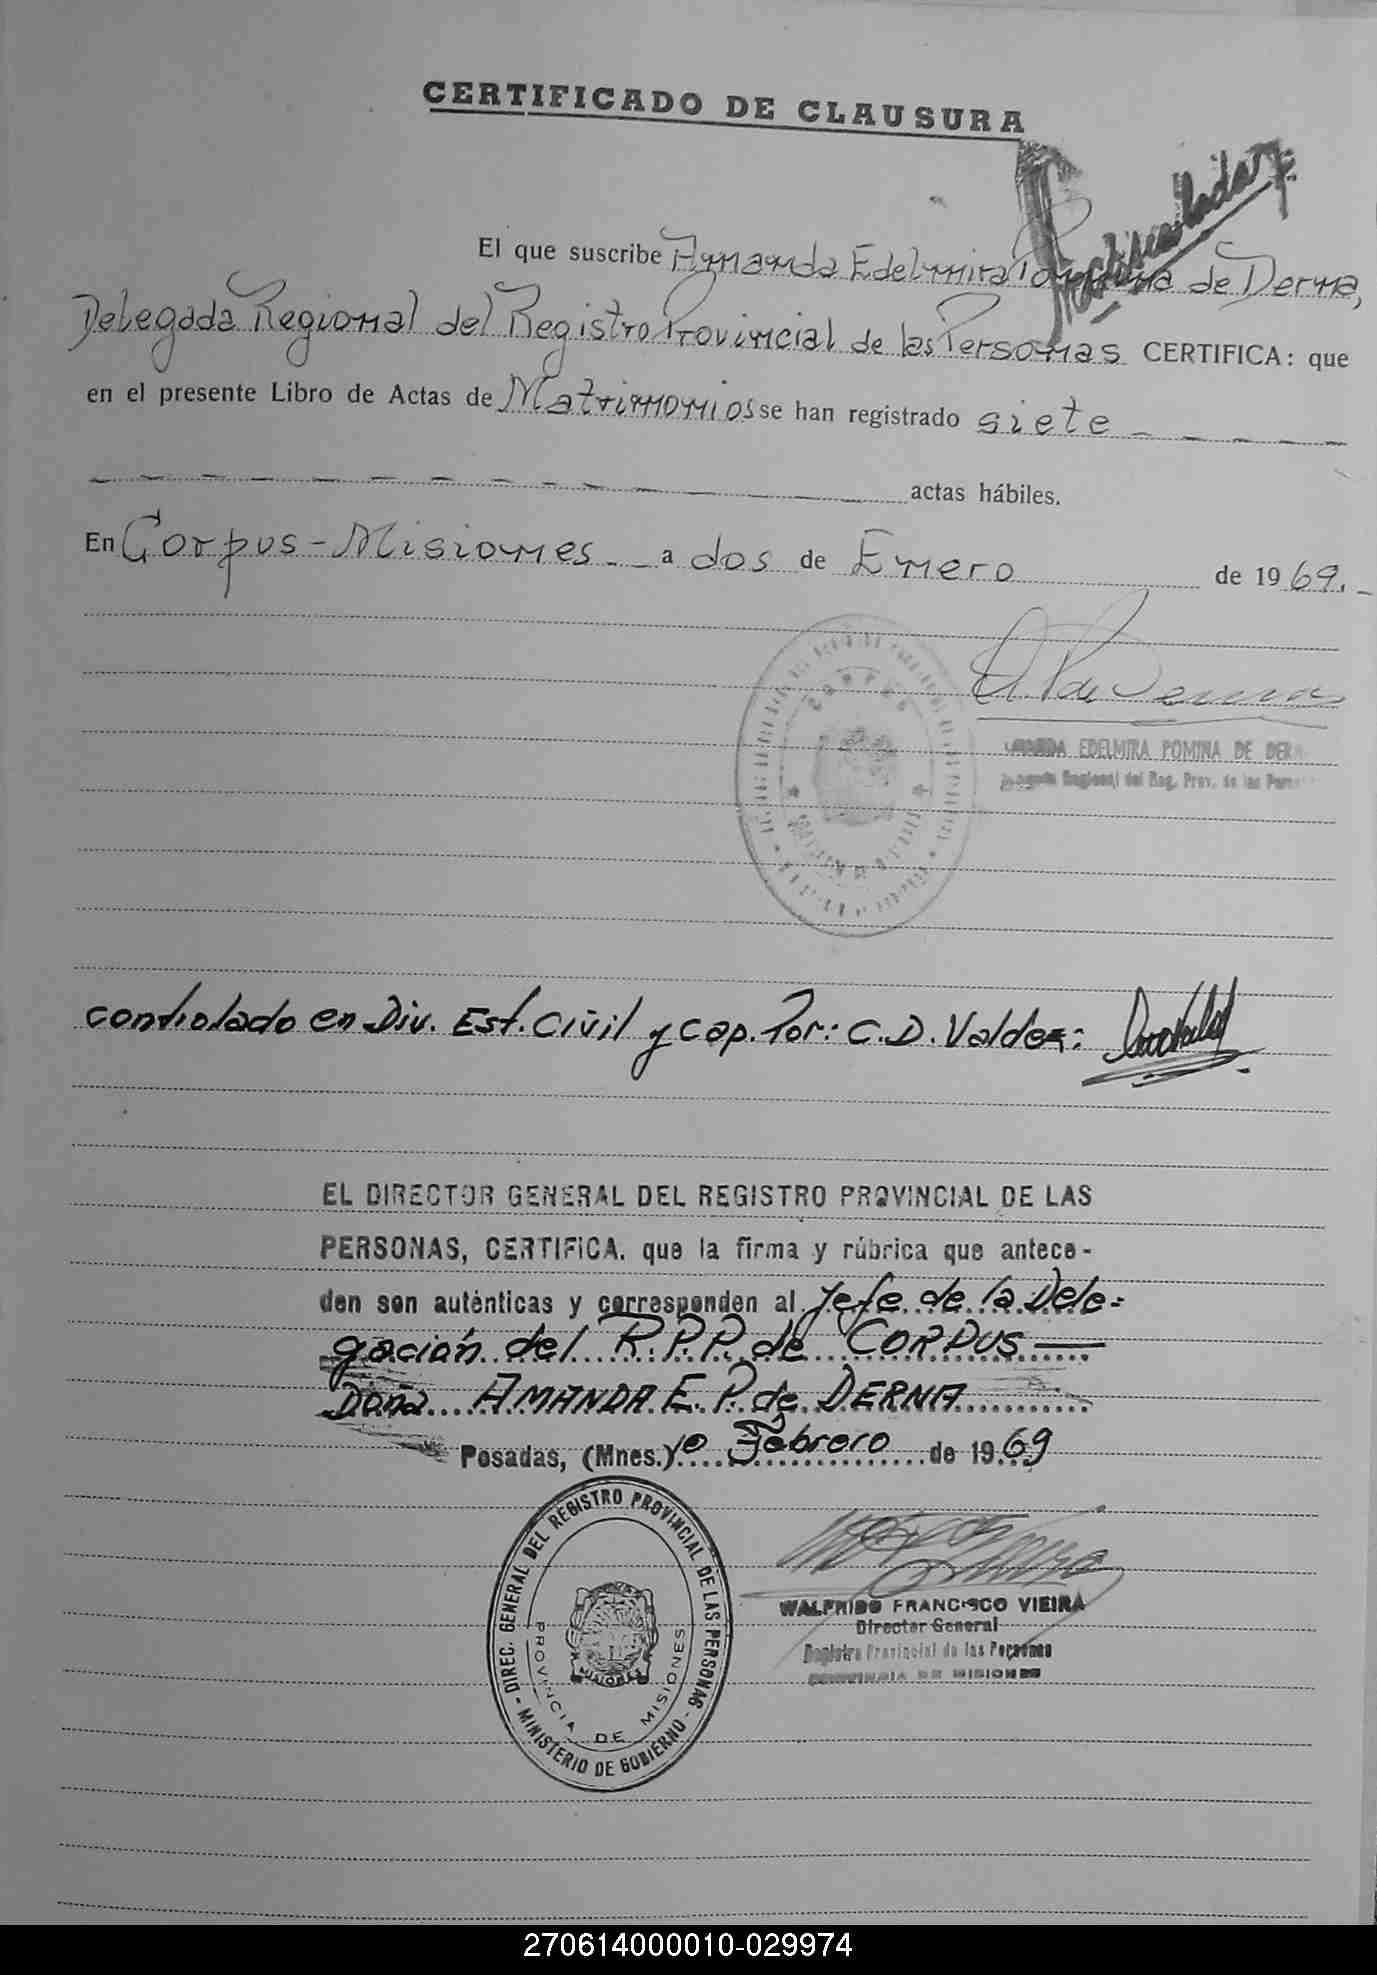 CERTIFICADO DE CLAUSURA
El que suscribe Amanda Edelmira Pomina de Derna,
Delegada Regional del Registro Provincial de las Personas CERTIFICA: que
en el presente Libro de Actas de Matrimonios se han registrado siete
actas hábiles.
En Corpus - Misiones a dos de Enero de 1969.
EDELMIRA POMINA DE
Regional del Reg. Prov. de las
CORPUS
controlado en Div. Est. Civil y Cap. Por: C.D. Valdez:
EL DIRECTOR GENERAL DEL REGISTRO PROVINCIAL DE LAS
PERSONAS, CERTIFICA. que la firma y rúbrica que antece-
den son auténticas y corresponden al Jefe de la Dele=
gación del R.P.P. de CORPUS
Doña AMANDA E. P. de DERNA
Posadas, (Mnes.) 1º Febrero de 1969
DIREC. GENERAL DEL REGISTRO PROVINCIAL DE LAS PERSONAS - MINISTERIO DE GOBIERNO -
PROVINCIA DE MISIONES
MISIONES
WALFRIDO FRANCISCO VIEIRA
Director General
Registro Provincial de las Personas
PROVINCIA DE MISIONES
270614000010-029974